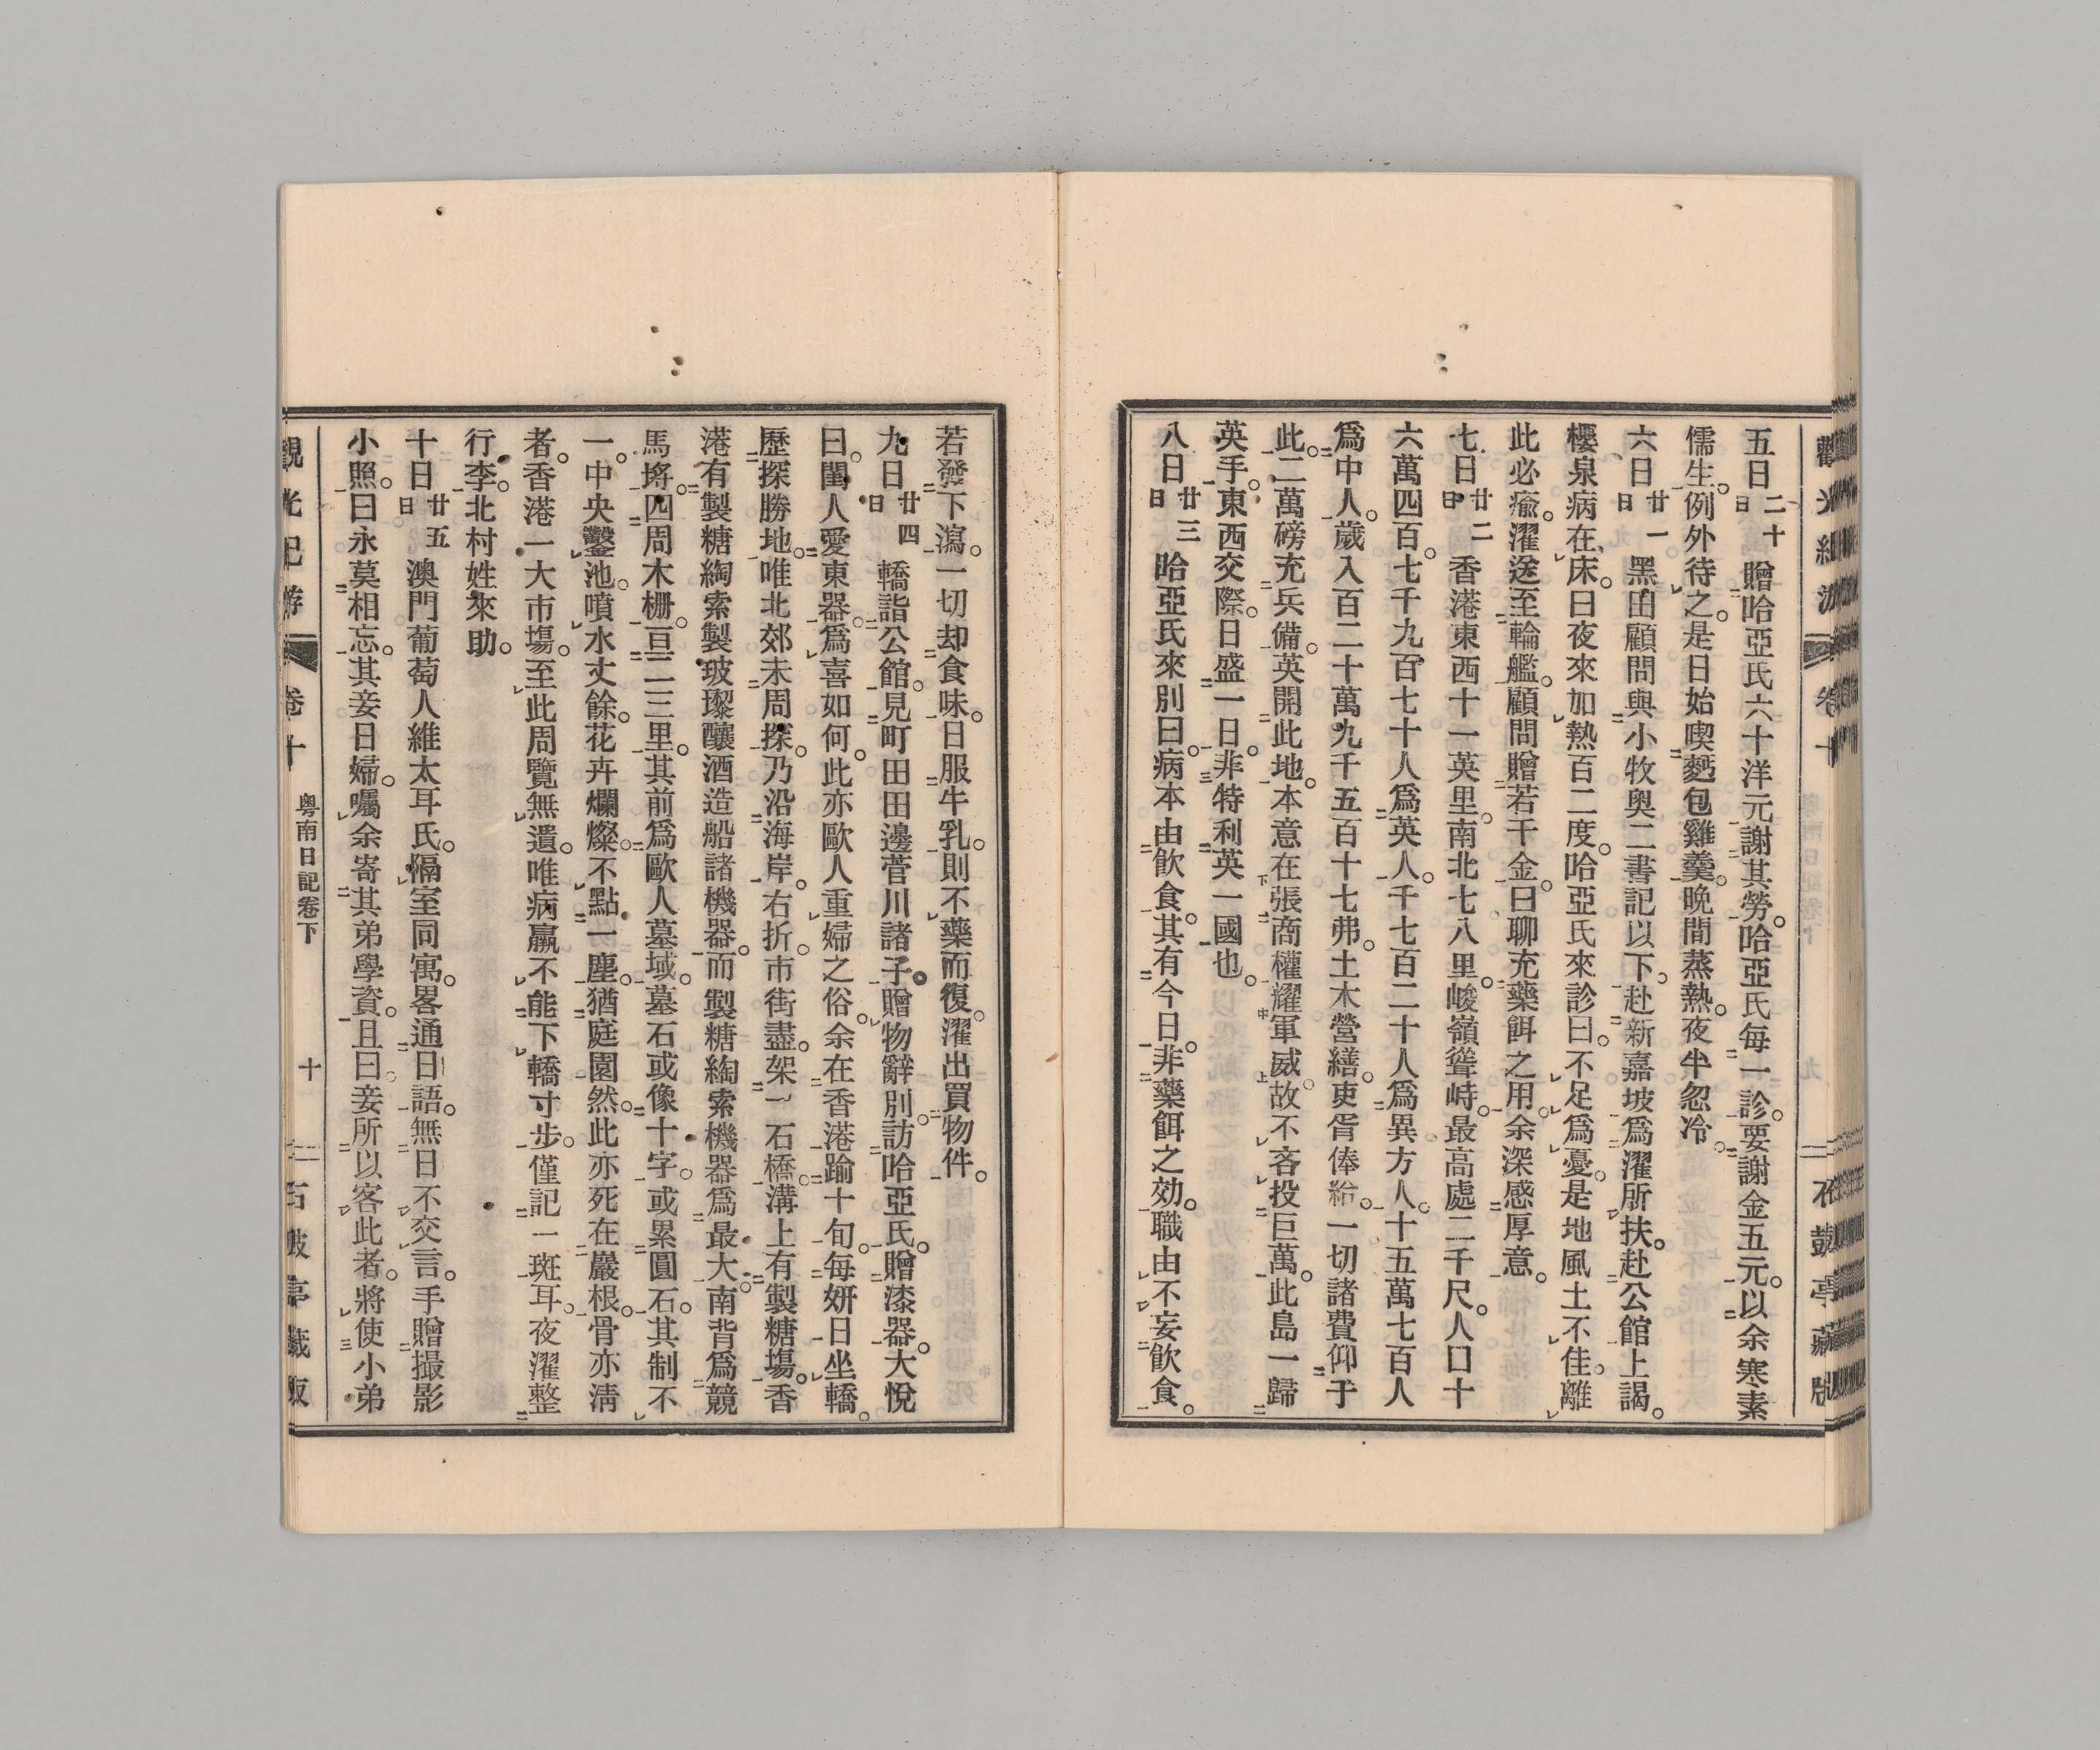 五日二十日贈哈亞氏六十洋元謝其勞。哈亞氏每一診。要謝金五元。以余寒素
儒生。例外待之。是日始喫麪包雞羹。晚間蒸熱。夜半忽冷。
六日廿一日黑田顧問與小牧奧二書記以下。赴新嘉坡爲濯所扶。赴公館上謁。
櫻泉病在床。曰夜來加熱百二度。哈亞氏來診曰。不足爲憂。是地風土不佳。離
此必癒。濯送至輪艦。顧問贈若干金。曰聊充藥餌之用。余深感厚意。
七日廿二日香港東西十一英里。南北七八里。峻嶺聳峙。最高處二千尺。人口十
六萬四百。七千九百七十人爲英人。千七百二十人爲異方人。十五萬七百人
爲中人。歲入百二十萬九千五百十七弗。土木營繕。吏胥俸給。一切諸費仰于
此。二萬磅充兵備。英開此地。本意在張商權耀軍威。故不吝投巨萬。此島一歸
英手。東西交際。日盛一日。非特利英一國也。
八日廿三日哈亞氏來別曰。病本由飮食。其有今日。非藥餌之効。職由不妄飮食。
若發下瀉。一切却食味。日服牛乳。則不藥而復。濯出買物件。
九日廿四日轎詣公館。見町田田邊菅川諸子。贈物辭別。訪哈亞氏。贈漆器。大悅
曰。閨人愛東器。爲喜如何。此亦歐人重婦之俗。余在香港踰十旬。每姸日坐轎。
歷探勝地。唯北郊未周探。乃沿海岸。右折。市街盡。架一石橋。溝上有製糖塲。香
港有製糖綯索製玻瓈釀酒造船諸機器。而製糖綯索機器爲最大。南背爲競
馬塲。四周木柵。亘二三里。其前爲歐人墓域。墓石或像十字。或累圓石。其制不
一。中央鑿池。噴水丈餘。花卉爛燦。不點一塵。猶庭園然。此亦死在巖根。骨亦淸
者。香港一大市塲。至此周覽無遺。唯病羸不能下轎寸步。僅記一斑耳。夜濯整
行李。北村姓來助。
十日廿五日澳門葡萄人維太耳氏。隔室同寓。畧通日語。無日不交言。手贈撮影
小照。曰永莫相忘。其妾日婦。囑余寄其弟學資。且曰。妾所以客此者。將使小弟
觀光紀游 卷十 粤南日記卷下 十 石鼓亭藏版